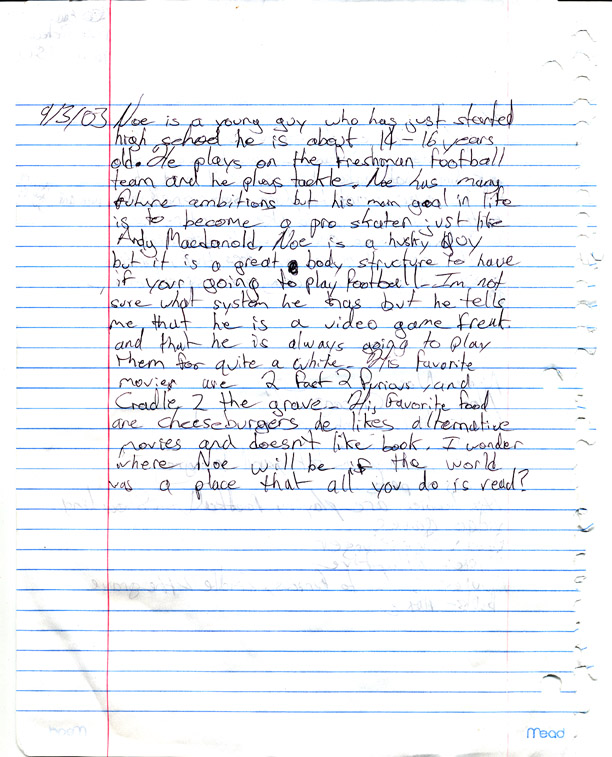 9/3/03 Noe is a young guy who has just started
high school he is about 14-16 years
old. He plays on the freshman football
team and he plays tackle. Noe has many
future ambitions but his main goal in life
is to become a pro skater just like
Andy Macdonald. Noe is a husky guy
but it is a great body structure to have
if your going to play football. Im not
sure what system he has but he tells
me that he is a video game freak
and that he is always going to play
them for quite a while. His favorite
movies are 2 Fast 2 Furious, and
Cradle 2 the grave. His favorite food
are cheeseburgers de likes alternative
movies and doesn't like book. I wonder
where Noe will be if the world
was a place that all you do is read?
Mead